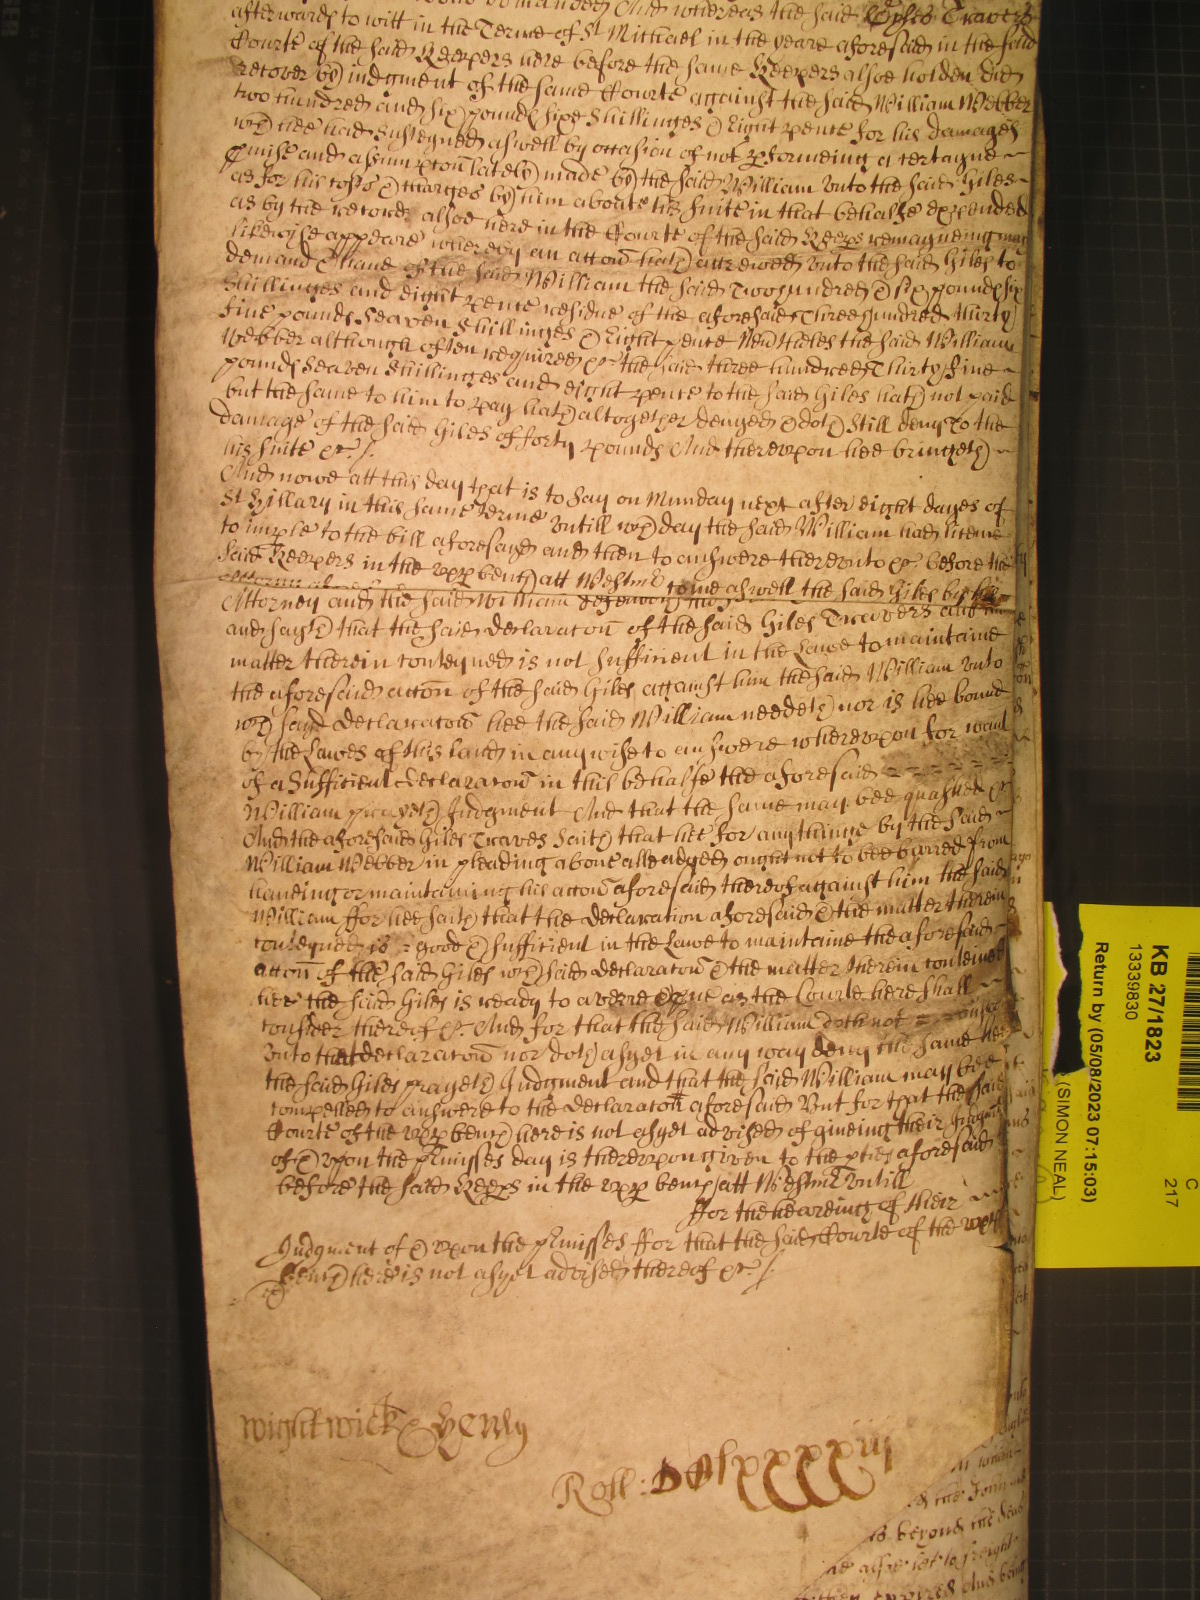 demanded And whereas the said Gyles Travers
afterwards to witt in the Terme of St Michael in the yeare aforesaid in the said
Courte of the said Keepers here before the same Keepers alsoe holden did
recover by iudgment of the same Courte against the said William Webber
two hundred and six pounds sixe shillinges & Eight pence for his damages
wch hee had susteyned aswell by occasion of not pformeing a certayne
pmise and assumpcon lately made by the said William unto the said Giles
as for his costs & charges by him aboute his suite in that behalfe expended
as by the record alsoe here in the Courte of the said Keeps remayneing may
likewise appeare whereby an accon hath accrewed unto the said Giles to
demand & have of the said William the said Two hundred & six pounds six
shillinges and eight pence residue of the aforesaid Three hundred thirty
five pounds seaven shillinges & Eight pence Nevtheles the said William
Webber although often required &c the said three hundred Thirty five
pounds seaven shillinges and eight pence to the said Giles hath not paid
but the same to him to pay hath altogether denyed & doth still deny To the
damage of the said Giles of forty pounds And thereupon hee bringeth
his suite &c /.
And nowe att this day that is to say on Munday next after eight dayes of
St Hillary in this same Terme untill wch day the said William had licence
to imple to the bill aforesayd and then to answere thereunto &c before the
said Keepers in the upp bench att Westmr come aswell the said Giles by his
Attorney and the said William
and sayth that the said declaracon of the said Giles Travers and the
matter therein conteyned is not sufficient in the Lawe to maintaine
the aforesaid accon of the said Giles against him the said William unto
wch said declaracon hee the said William needeth nor is hee bound
by the Lawes of this land in any wise to answere whereupon for want
of a Sufficient declaracon in this behalfe the aforesaid
William prayeth Judgment And that the same may bee quashed &c
And the aforesaid Giles Traves saith that hee for any thinge by the said
William Webber in pleading above alleadged ought not to bee barred from
haveing or maintaining his accon aforesaid thereof against him the said
William ffor hee saith that the declaration aforesaid & the matter therein
conteyned is good & sufficient in the Lawe to maintaine the aforesaid
accon of the said Giles wch said declaracon & the matter therein conteined
hee the said Giles is ready to averre & pve as the Courte here shall
consider thereof &c And for that the said William doth not answere
unto that declaracon nor doth asyet in any way deny the same hee
the said Giles prayeth Judgment and that the said William may bee
compelled to answere to the declaracon aforesaid But for that the said
Courte of the upp bench here is not asyet advised of giveing their Judgmt
of & upon the pmisses day is thereupon given to the pties aforesaid
before the said Keeps in the upp bench att Westmr untill
ffor the heareing of their
Judgment of & upon the pmisses ffor that the said Courte of the upp
bench here is not asyet advised thereof &c /.
Wightwick & Henly
Roll: DClxxxxiij
beyond the
KB 27/1823
13339830
Return by (05/08/2023 07:15:03)
(SIMON NEAL)
C
217